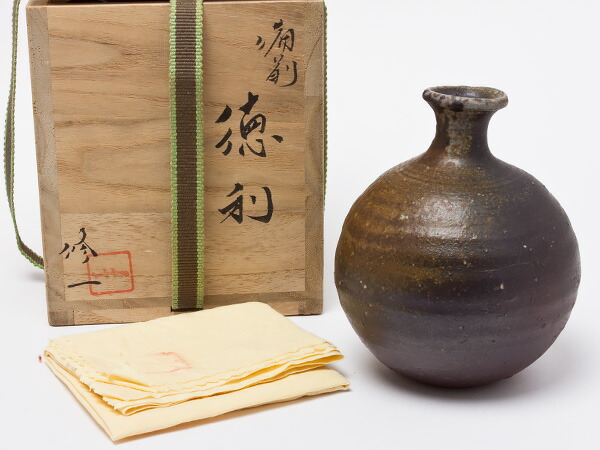 備前
徳利
修一